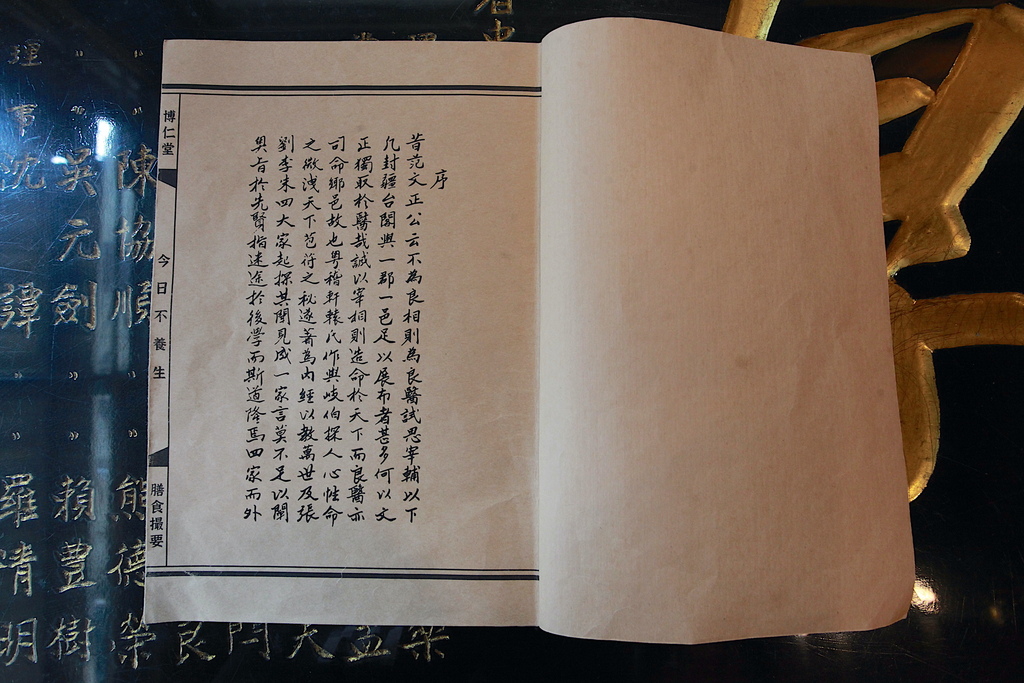 序
昔范文正公云不為良相則為良醫試思宰輔以下
凡封疆台閣與一郡一邑足以展布者甚多何以文
正獨取於醫哉誠以宰相則造命於天下而良醫亦
司命鄉邑故也粵稽軒轅氏作與岐伯探人心性命
之微洩天下苞符之秘遂著為內經以教萬世及張
劉李朱四大家起探其閫見成一家言莫不足以闡
奧旨於先賢指迷途於後學而斯道隆焉四家而外
博仁堂
今日不養生
膳食撮要
陳協順
吳元劍
沈譚
理事
熊德榮
賴豊樹
羅清明